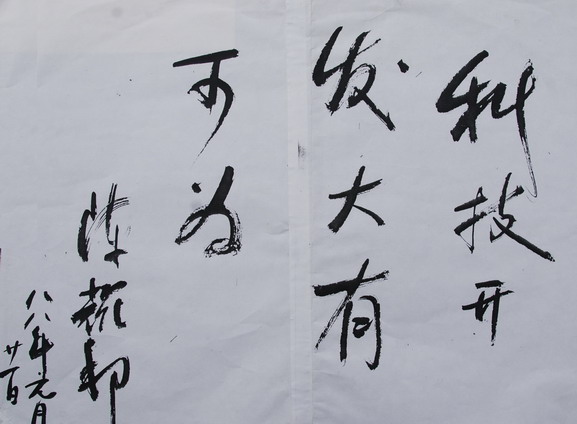 科技开
发大有
可为
八八年元月
廿一日